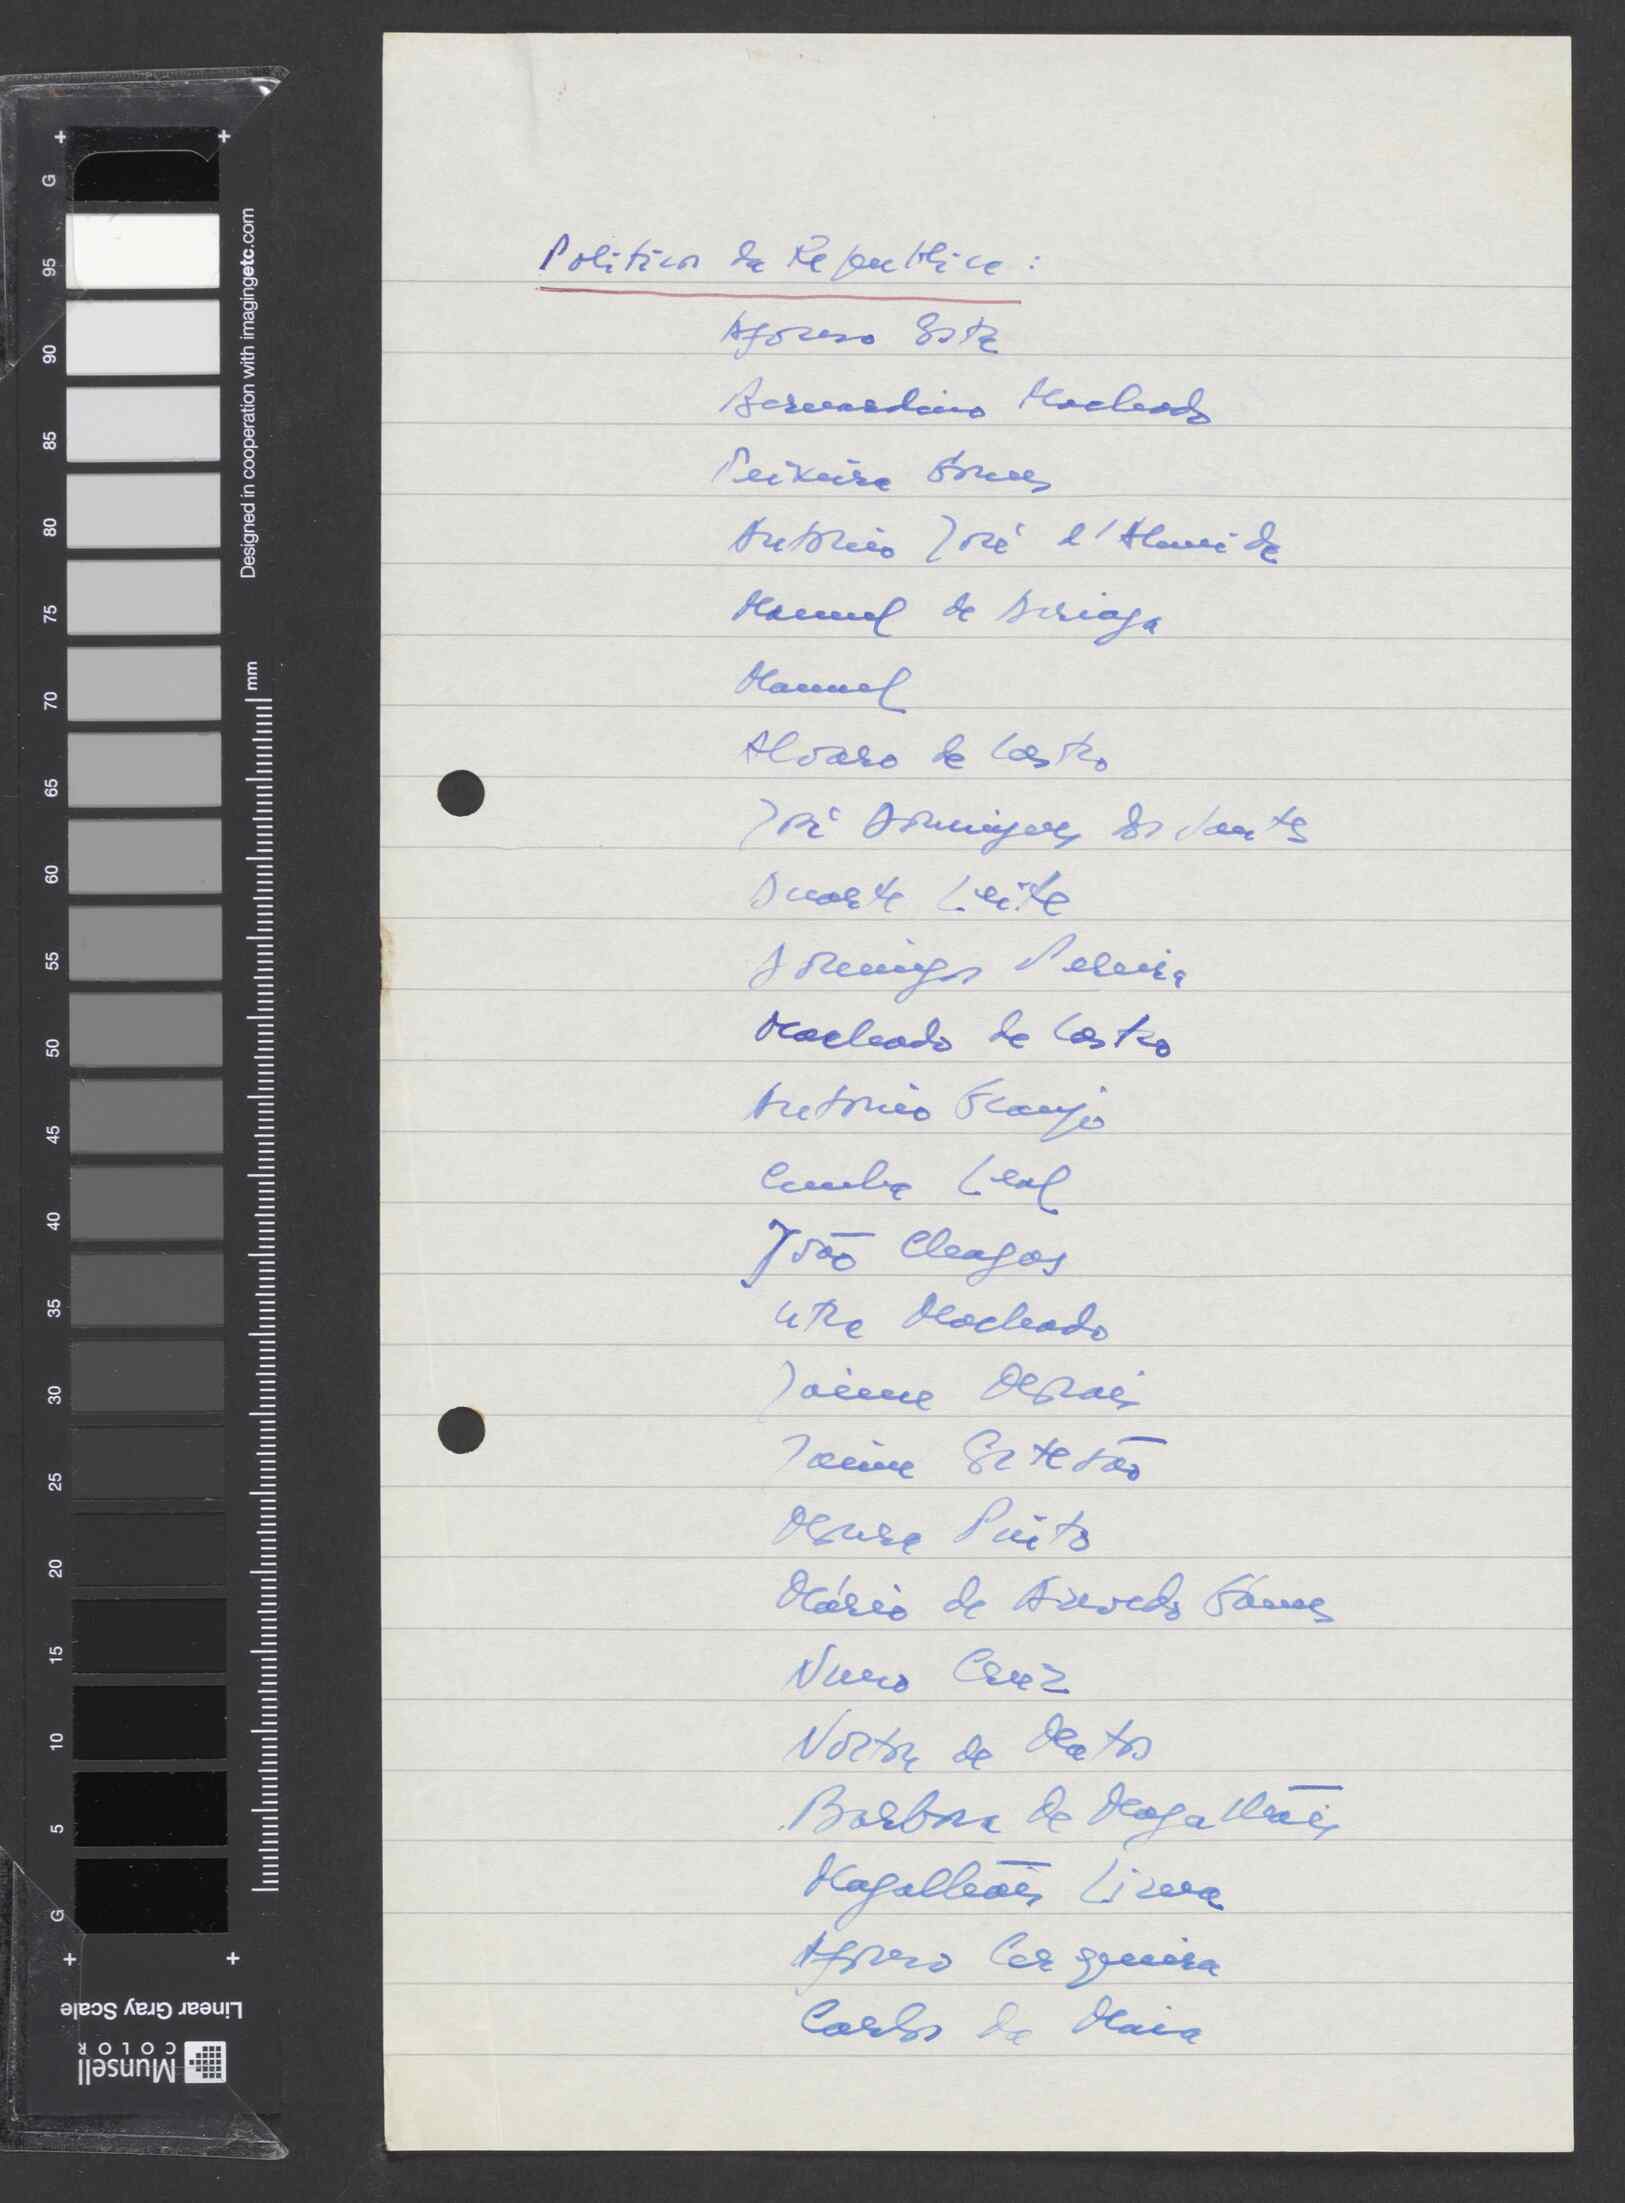 Politicos da Republica:
Afonso Costa
Bernardino Machado
Teixeira Gomes
Antonio José d'Almeida
Manuel de Arriaga
Manuel
Alvaro de Castro
José Domingues dos Santos
Duarte Leite
Domingos Pereira
Machado de Castro
Antonio Granjo
Cunha Leal
João Chagas
Utra Machado
Jaime Morais
Jaime Cortesão
Moura Pinto
Mário de Azevedo Gomes
Nuno Cruz
Norton de Matos
Barbosa de Magalhães
Magalhães Lima
Afonso Cerqueira
Carlos da Maia
G
95
90
85
80
75
70
65
60
55
50
45
40
35
30
25
20
15
10
5
G
Designed in cooperation with imagingetc.com
mm
Linear Gray Scale
Munsell
COLOR